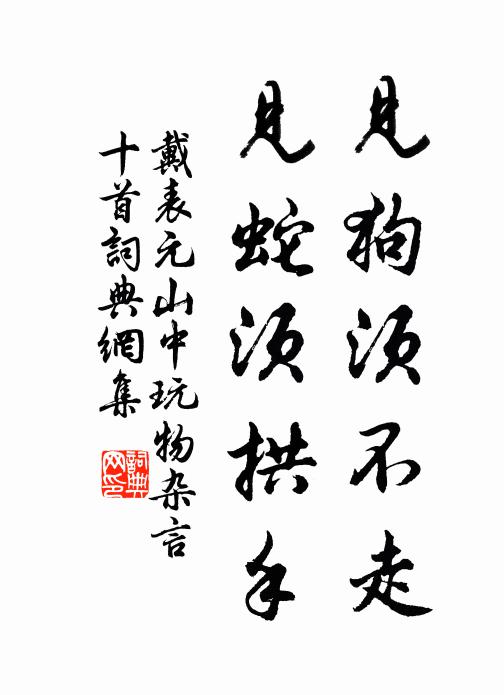 見狗须不走
見蛇须拱手
戴表元山中玩物杂言
十首詞典網集
詞典
网印